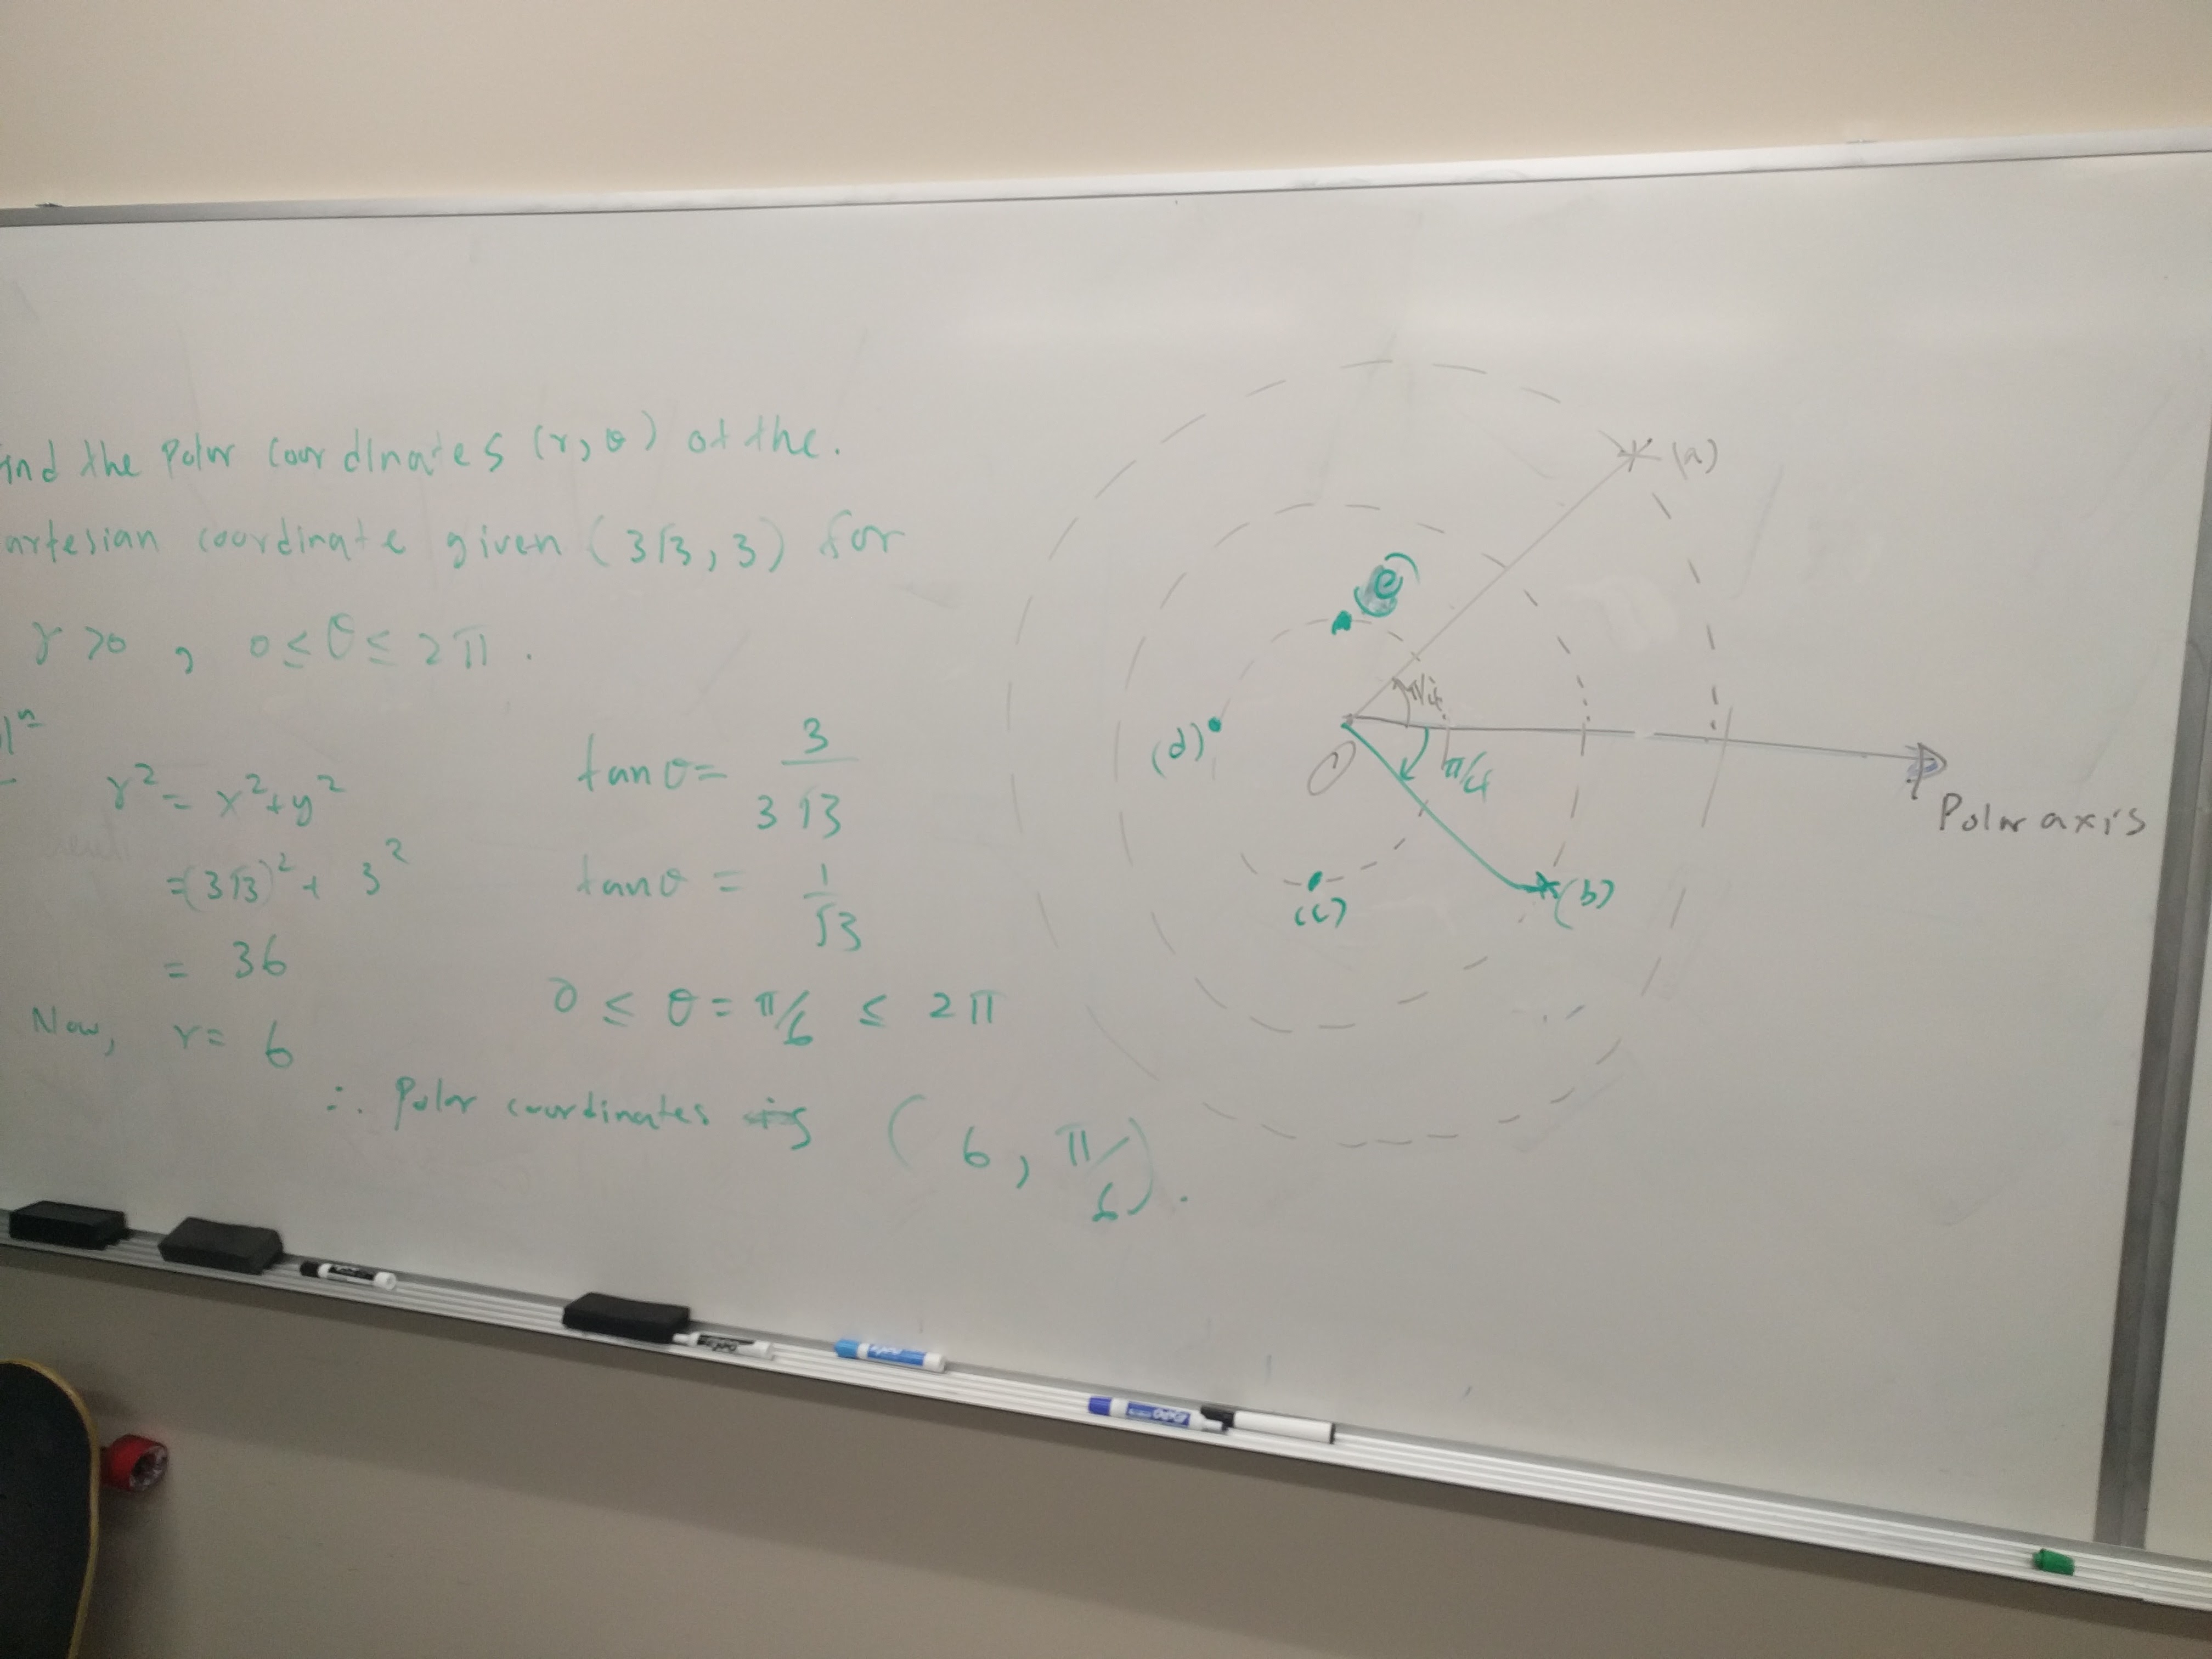 ind the Polar Coordinates (r, θ) of the.
artesian coordinate given (3√3, 3) for
r >0 , 0 ≤ θ ≤ 2π .
lⁿ
r² = x² + y²
= (3√3)² + 3²
= 36
Now, r = 6
tan θ = 3/3√3
tan θ = 1/√3
0 ≤ θ = π/6 ≤ 2π
∴ Polar coordinates is (6, π/6).
(a)
(e)
π/4
(d)
O
π/4
(b)
(c)
Polar axis